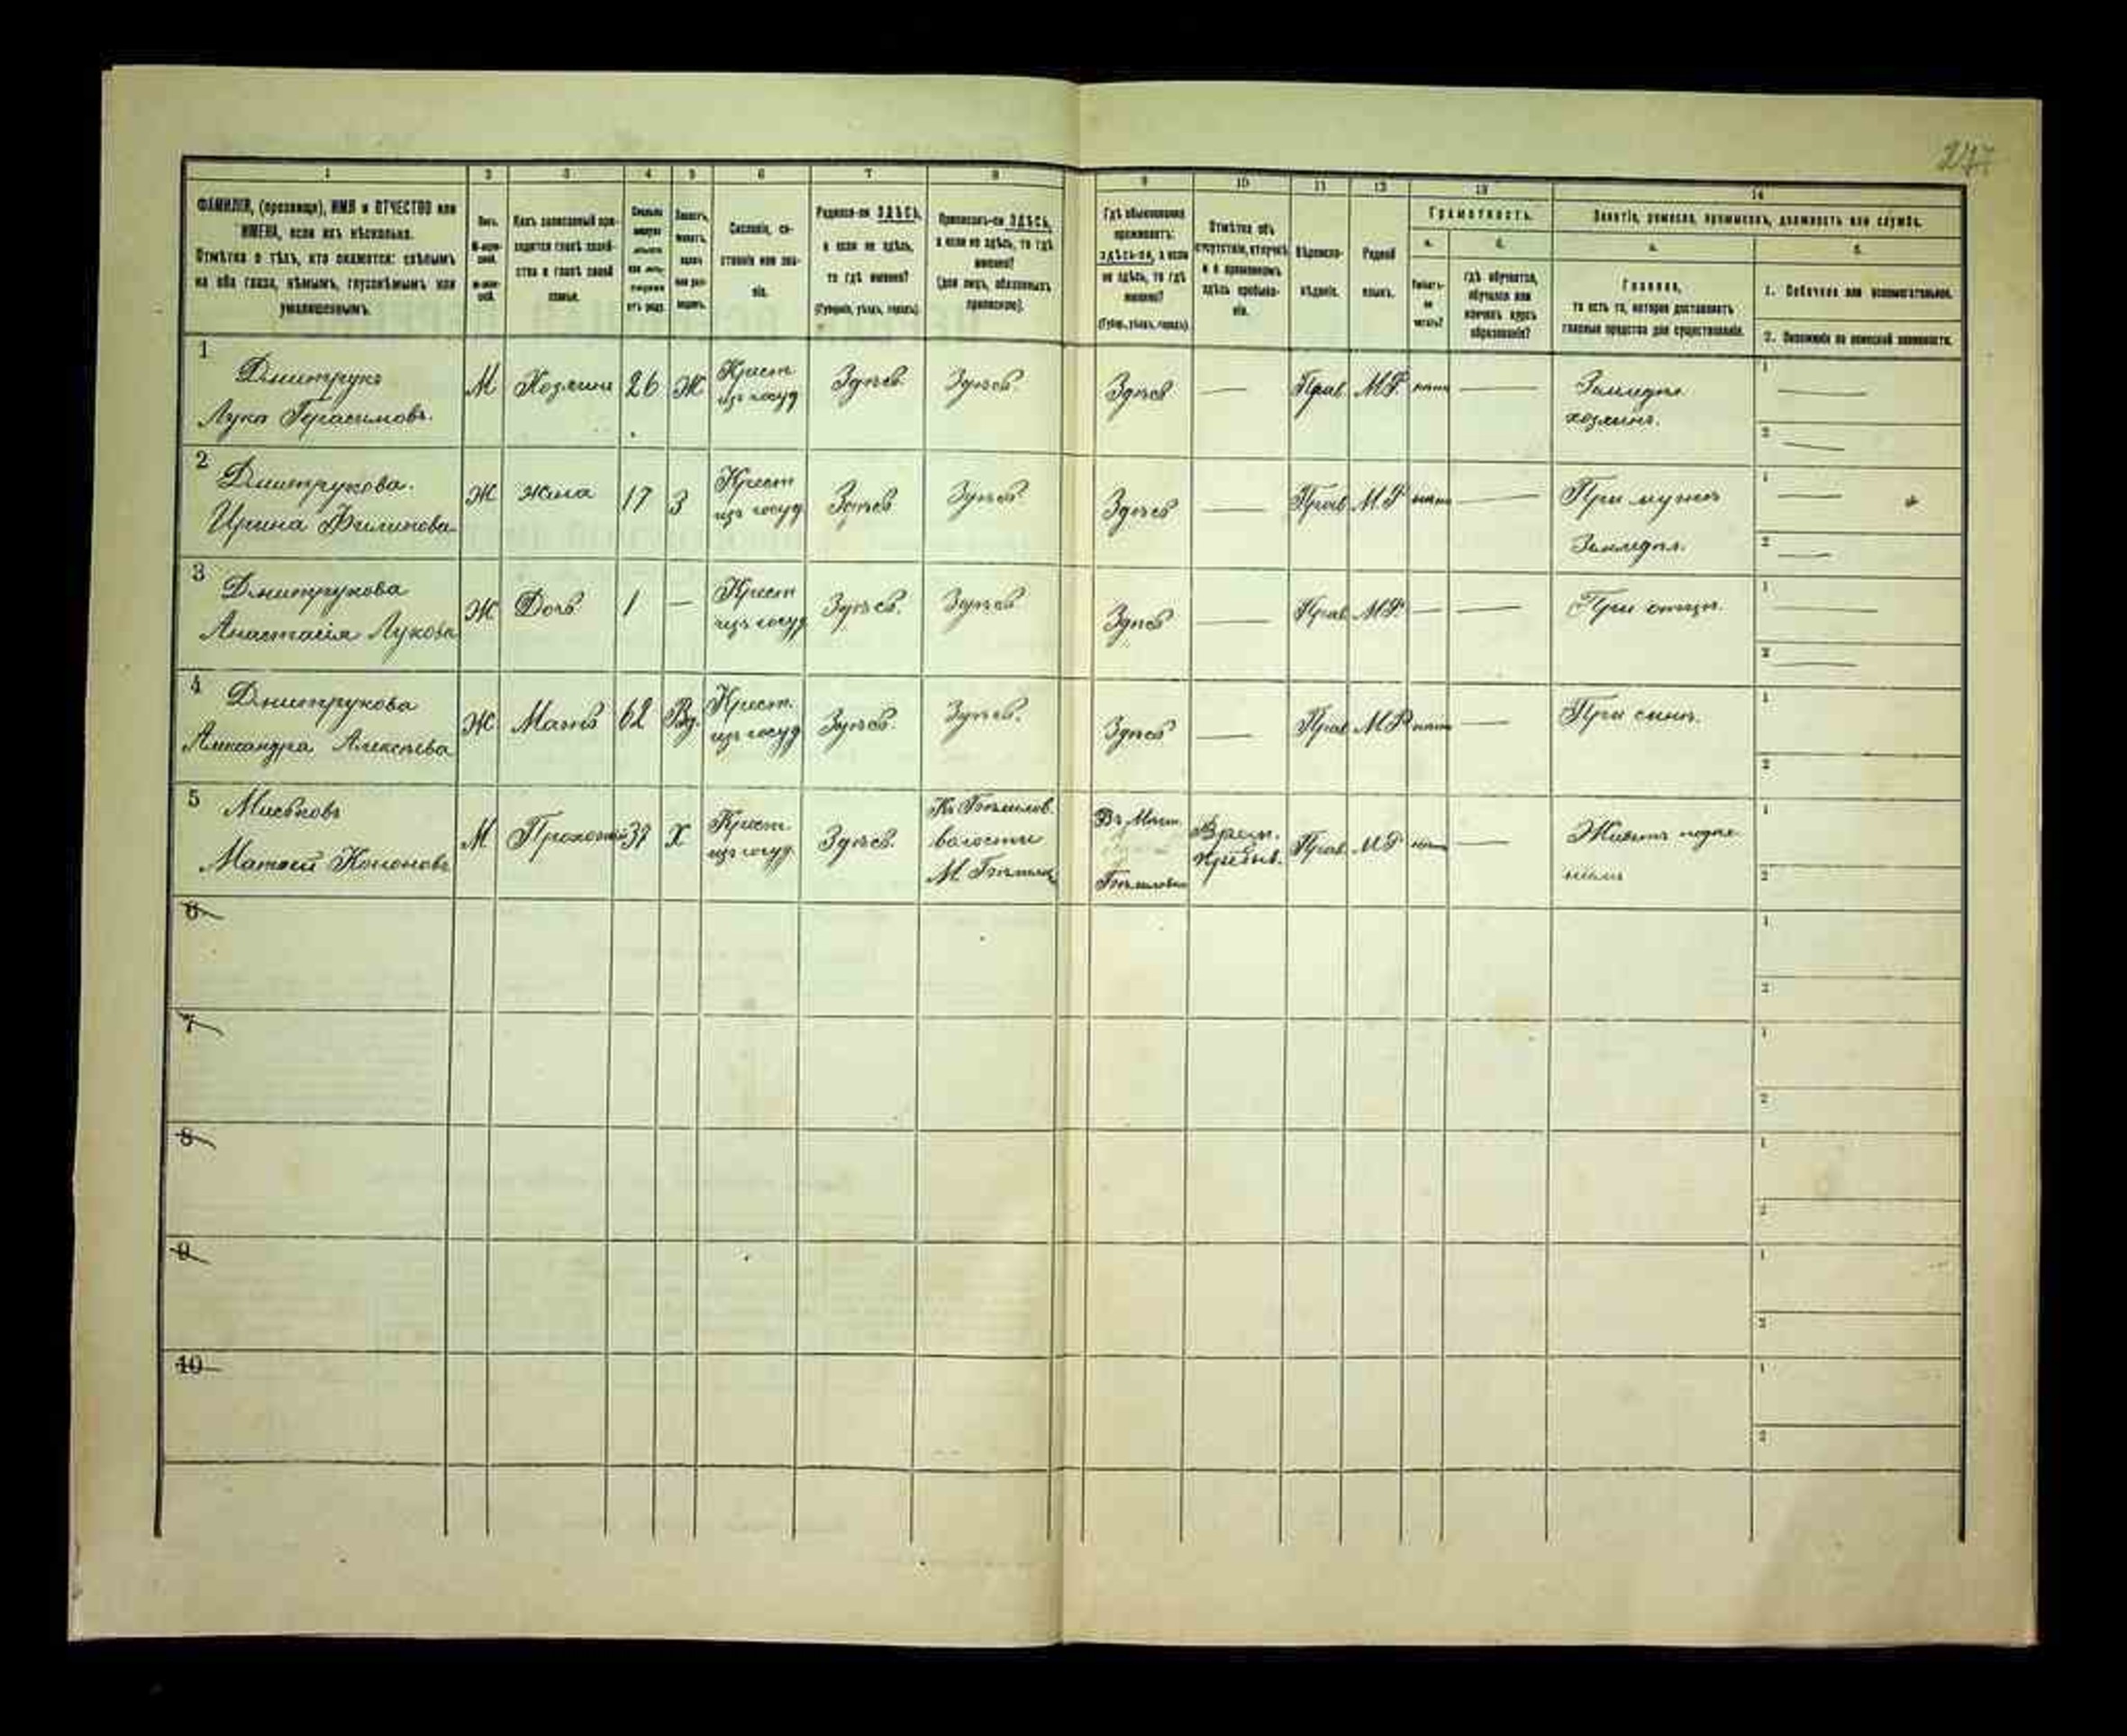 277
1 2 3 4 5 6 7 8 9 10 11 12 13 14
ФАМИЛІЯ, (прозвище), ИМЯ и ОТЧЕСТВО или
ИМЕНА, если ихъ нѣсколько.
Отмѣтка о тѣхъ, кто окажется: слѣпымъ
на оба глаза, нѣмымъ, глухонѣмымъ или
умалишеннымъ.
Полъ.
Какъ записанный при-
ходится главѣ хозяй-
ства и главѣ своей
семьи.
Сословіе, со-
стояніе или зва-
ніе.
Родился-ли ЗДѢСЬ,
а если не здѣсь,
то гдѣ именно?
(Губернія, уѣздъ, городъ).
Приписанъ-ли ЗДѢСЬ,
а если не здѣсь, то гдѣ
именно?
(для лицъ, обязанныхъ
припискою).
Гдѣ обыкновенно
проживаетъ:
здѣсь-ли, а если
не здѣсь, то гдѣ
именно?
(Губер., уѣздъ, городъ).
Отмѣтка объ
отсутствіи, отлучкѣ
и о временномъ
здѣсь пребыва-
ніи.
Вѣроиспо-
вѣданіе.
Родной
языкъ.
Грамотность.
а. б.
Умѣетъ-
ли
читать?
гдѣ обучается,
обучался или
кончилъ курсъ
образованія?
Занятіе, ремесло, промыселъ, должность или служба.
а. б.
Главное,
то есть то, которое доставляетъ
главныя средства для существованія.
1. Побочное или вспомогательное.
2. Положеніе по воинской повинности.
1 Дмитрукъ
Лука Герасимовъ.
М Хозяинъ 26 Ж
Крест
изъ госуд
Здѣсь Здѣсь Здѣсь — Прав. М.Р. —
Землед.
хозяинъ.
1 —
2 —
2 Дмитрукова.
Ирина Филипова
Ж жена 17 З
Крест
изъ госуд
Здѣсь Здѣсь Здѣсь — Прав М.Р —
При мужѣ
Землед.
1 —
2 —
3 Дмитрукова
Анастасія Лукова
Ж Дочь 1 —
Крест
изъ госуд
Здѣсь. Здѣсь Здѣсь — Прав М.Р. — —
При отцѣ.
1 —
2 —
4 Дмитрукова
Александра Алексѣева
Ж Мать 62 Вд.
Крест.
изъ госуд
Здѣсь. Здѣсь. Здѣсь — Прав М.Р —
При сынѣ.
1
2
5
Матвей Кононовъ
М 37 Х
Крест.
изъ госуд.
Здѣсь.
волости
Врем.
пребыв.
Прав. М.Р —
1
2
6
1
2
7
1
2
8
1
2
9
1
2
10
1
2